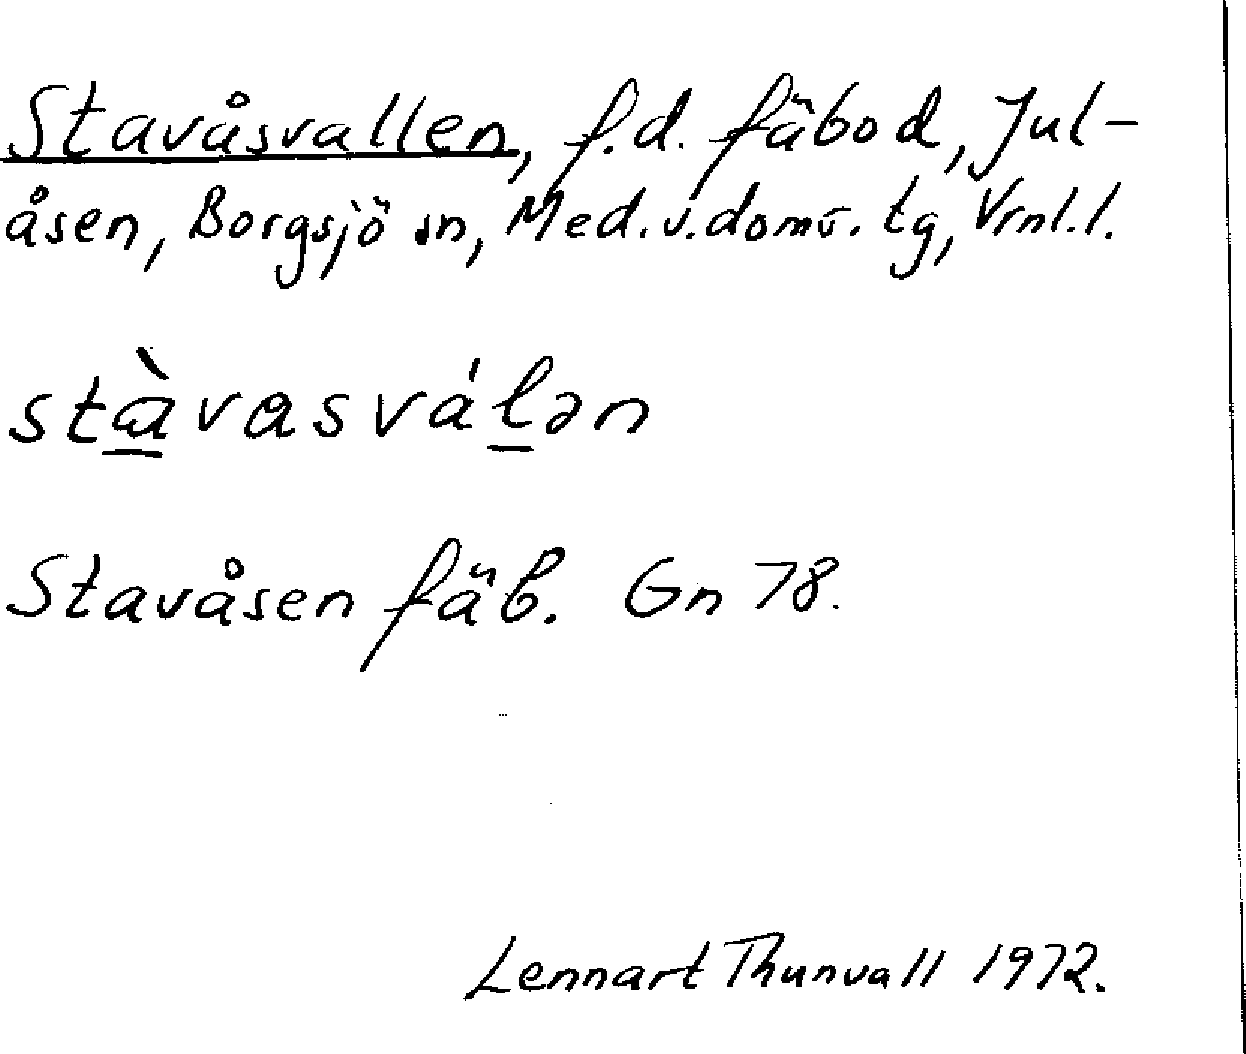 Stavåsvallen, f.d. fäbod, Jul-
åsen, Borgsjö sn, Med. v. doms. tg, Vrnl. l.
stàvasválən
Stavåsen fäb. Gn 78.
Lennart Thunvall 1972.